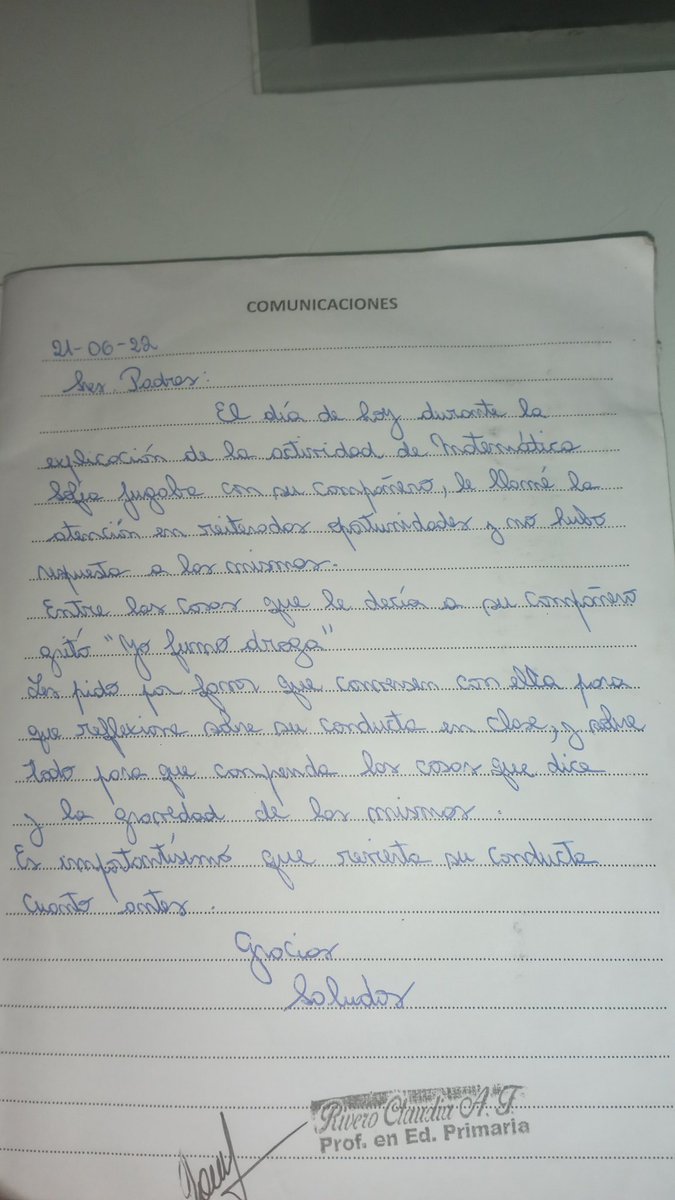 COMUNICACIONES
21-06-22
Sres. Padres:
El día de hoy durante la
explicación de la actividad de Matemática
jugaba con su compañero, le llamé la
atención en reiteradas oportunidades y no hubo
respuesta a las mismas.
Entre las cosas que le decía a su compañero
gritó "Yo fumo droga"
Les pido por favor que conversen con ella para
que reflexione sobre su conducta en clase, y sobre
todo para que comprenda las cosas que dice
y la gravedad de las mismas.
Es importantísimo que revierta su conducta
cuanto antes.
Gracias
Saludos
Rivero Claudia A. F
Prof. en Ed. Primaria